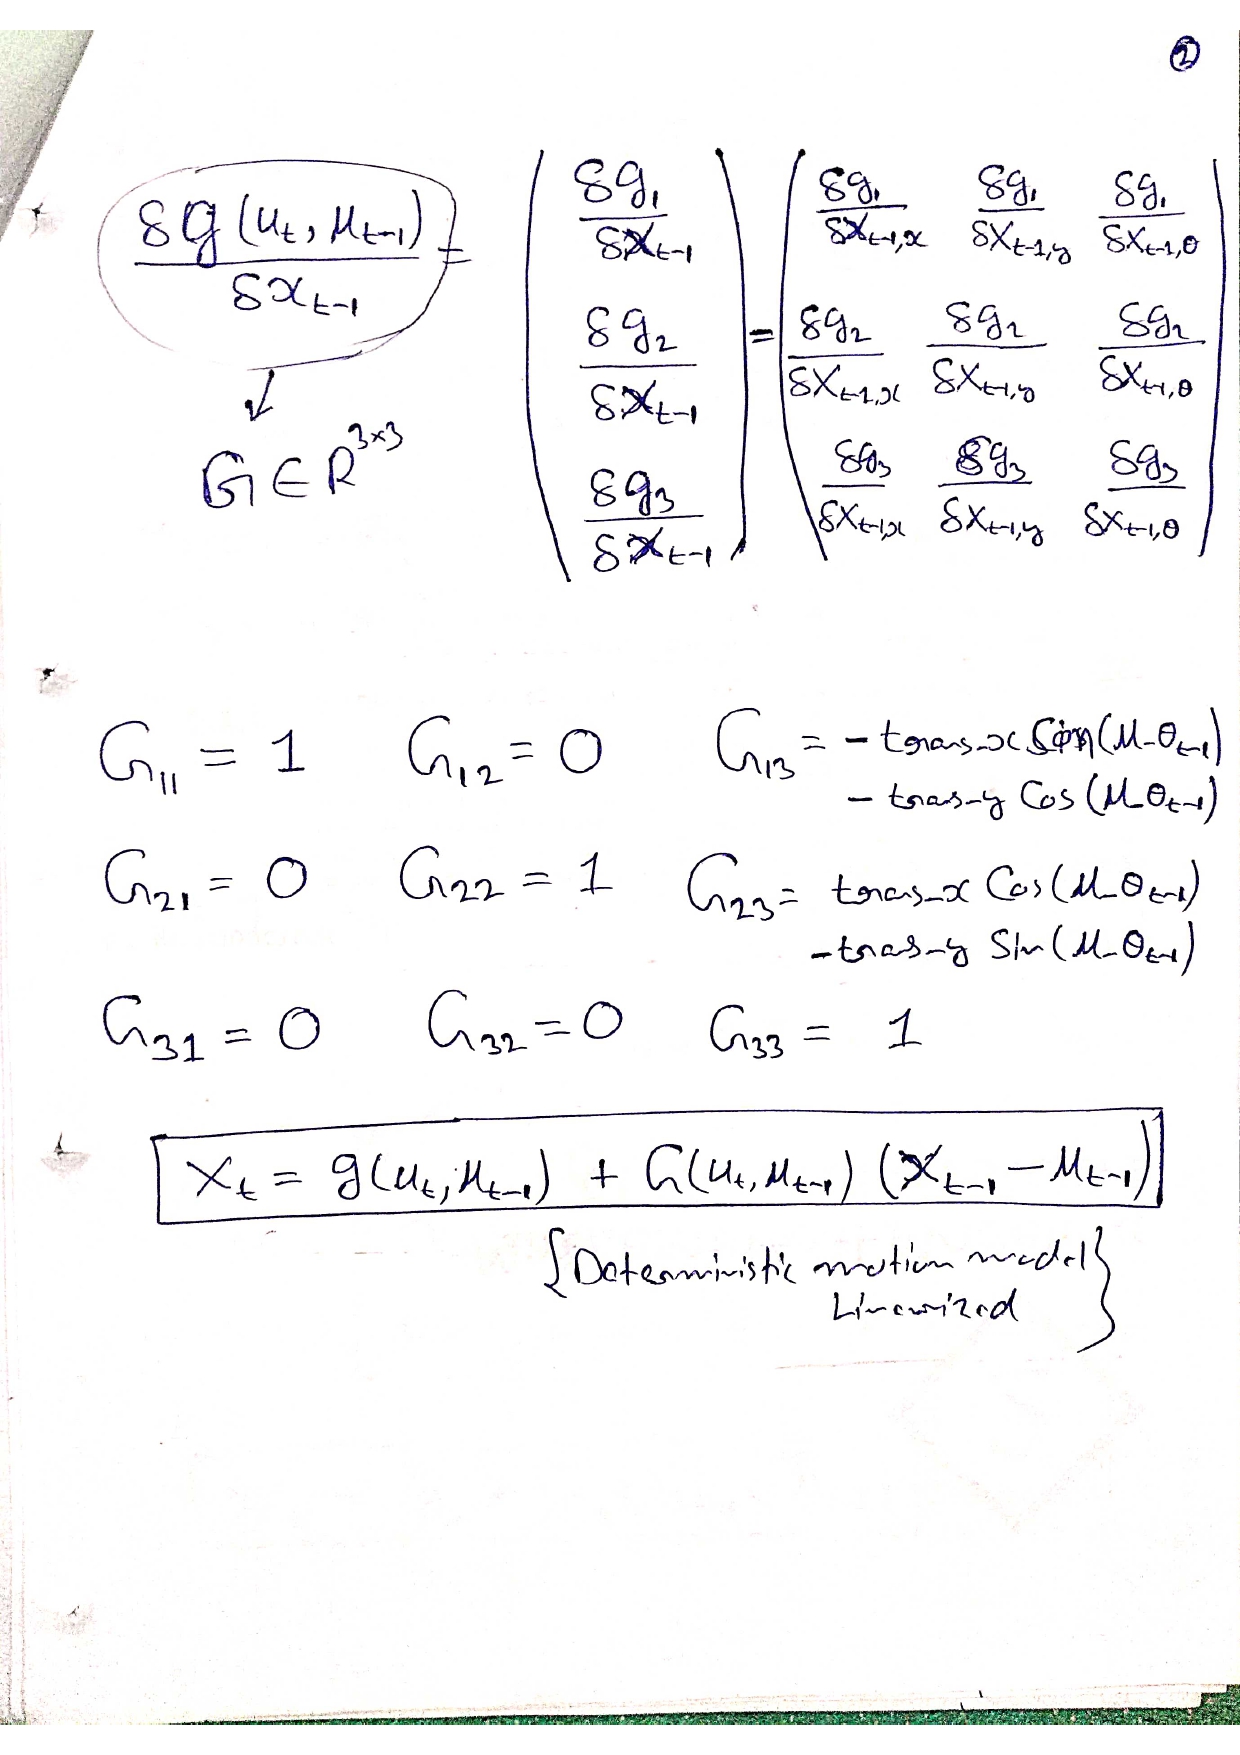 ②
δg(u_t, μ_{t-1}) / δx_{t-1} = ( δg_1/δx_{t-1} ; δg_2/δx_{t-1} ; δg_3/δx_{t-1} ) = ( δg_1/δx_{t-1,x} δg_1/δx_{t-1,y} δg_1/δx_{t-1,θ} ; δg_2/δx_{t-1,x} δg_2/δx_{t-1,y} δg_2/δx_{t-1,θ} ; δg_3/δx_{t-1,x} δg_3/δx_{t-1,y} δg_3/δx_{t-1,θ} )
↓
G ∈ R^{3×3}
G_{11} = 1 G_{12} = 0 G_{13} = - trans_x Sin(μ_θ_{t-1})
- tras_y Cos(μ_θ_{t-1})
G_{21} = 0 G_{22} = 1 G_{23} = trans_x Cos(μ_θ_{t-1})
- tras_y Sin(μ_θ_{t-1})
G_{31} = 0 G_{32} = 0 G_{33} = 1
x_t = g(u_t, μ_{t-1}) + G(u_t, μ_{t-1}) (x_{t-1} - μ_{t-1})
{Deterministic motion model
Linearized}